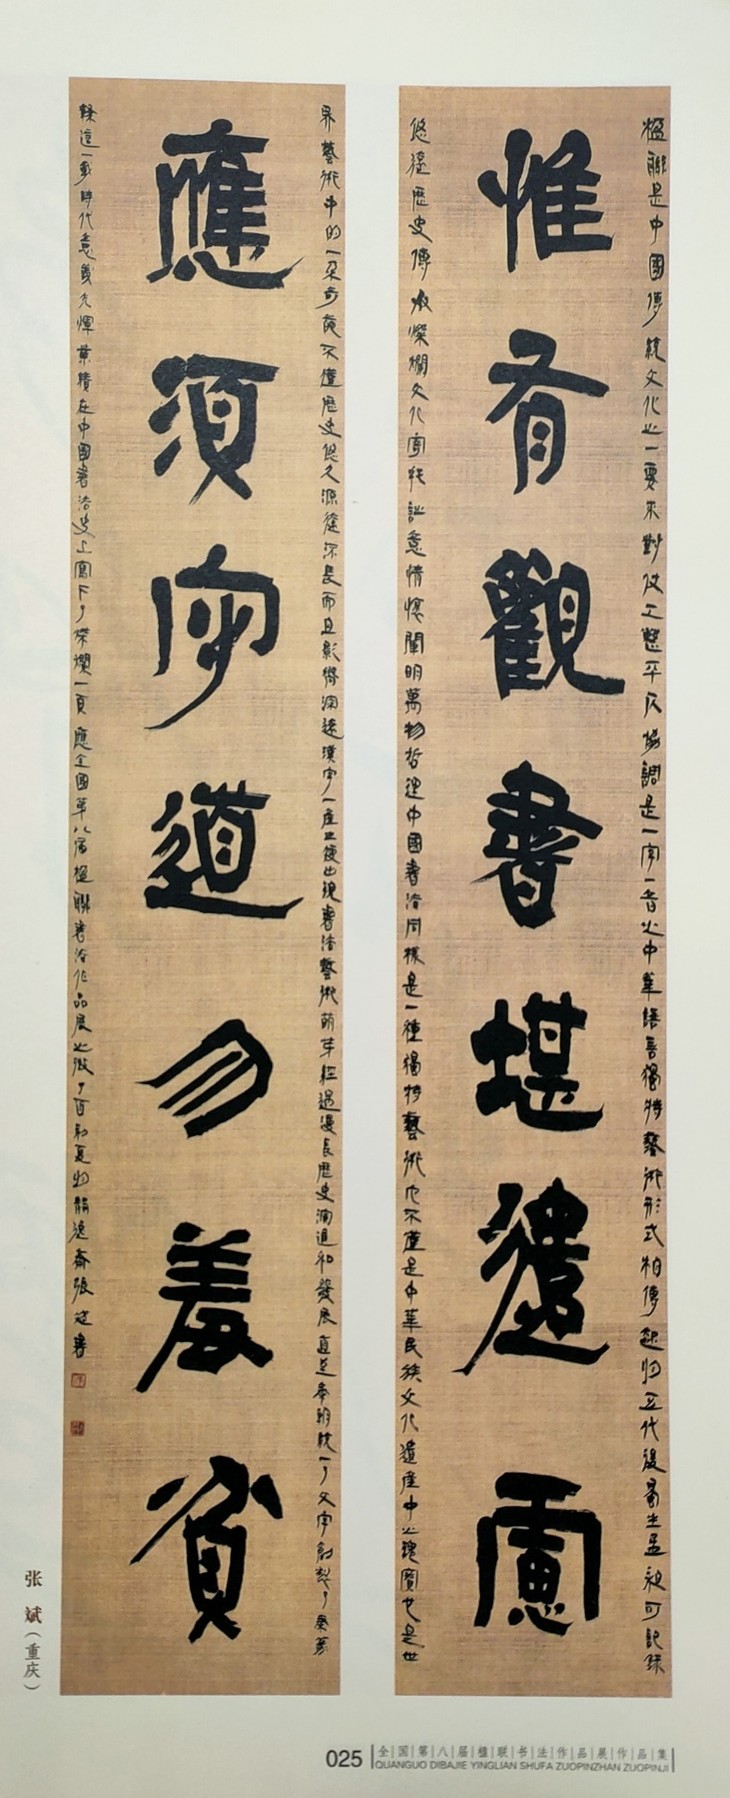 惟有觀書堪遣慮
應須守道勿羞貧
楹聯是中國傳統文化之一要求對仗工整平仄協調是一字一音之中華語言獨特藝術形式相傳起於五代後蜀主孟昶可記錄
悠遠歷史傳承燦爛文化寓託意情懷闡明萬物哲理中國書法同樣是一種獨特藝術它不僅是中華民族文化遺產中之瑰寶也是世
界藝術中的一朵奇葩不僅歷史悠久源遠流長而且影響深遠漢字一產生便出現書法藝術萌芽經過漫長歷史演進和發展直至秦朝統一了文字創製了秦篆
隸這一劃時代意義光輝業績在中國書法史上寫下了燦爛一頁應全國第八屆楹聯書法作品展之徵
張斌書
张斌（重庆）
025 全国第八届楹联书法作品展作品集
QUANGUO DIBAJIE YINGLIAN SHUFA ZUOPINZHAN ZUOPINJI